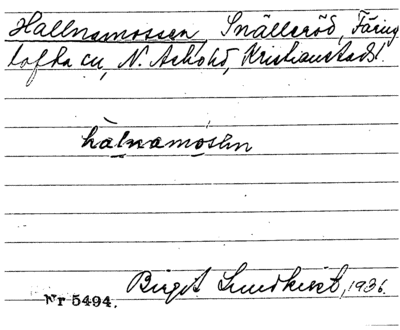 Hallnamossen, Snälleröd, Färing
tofta sn, N. Åsbohd, Kristianstads l.
hàlnamòsən
Birgit Lundkvist, 1936.
Nr 5494.